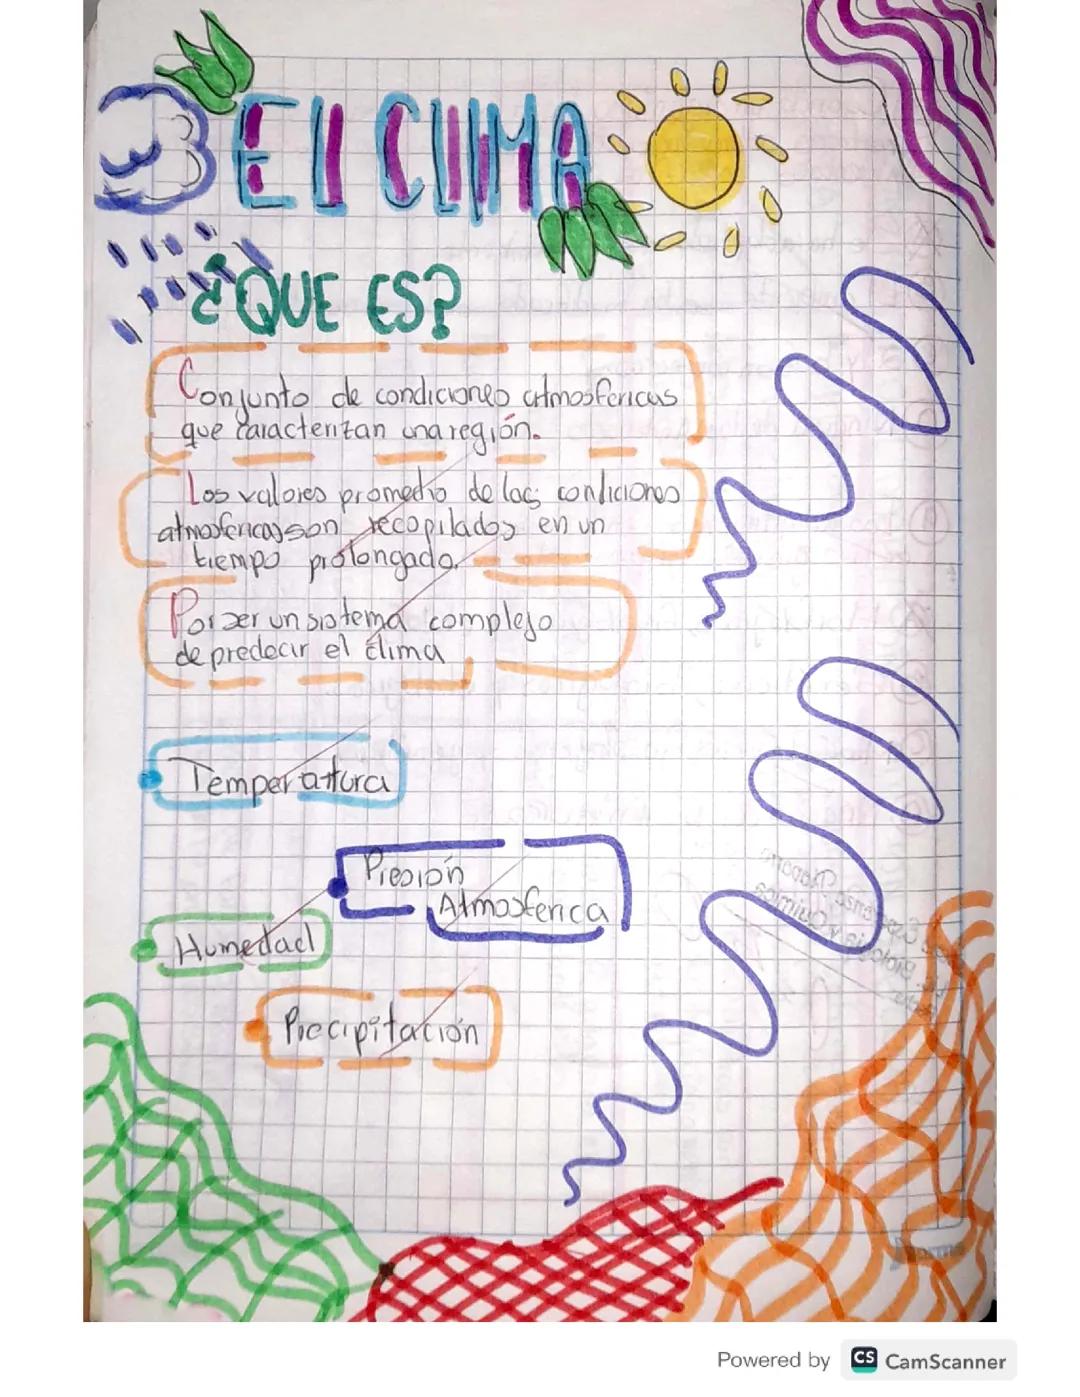 El ClIMA
¿QUE ES?
Conjunto de condiciones atmosfericas
que caracterizan una región.
Los valores promedio de las condiciones
atmosfericas son recopilados en un
tiempo prolongado.
Por ser un sistema complejo
de predecir el clima
Temperatura
Presión
Atmosferica
Humedad
Precipitación
Norma
Powered by CS CamScanner